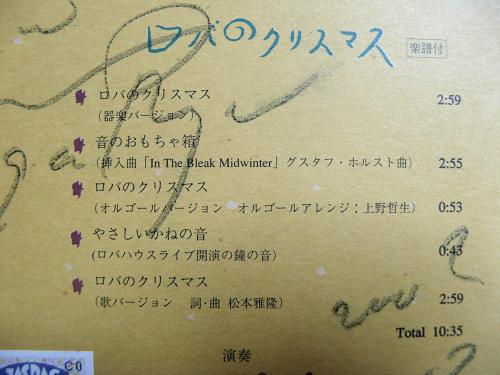 ロバのクリスマス 楽譜付
ロバのクリスマス
(器楽バージョン) 2:59
音のおもちゃ箱
(挿入曲「In The Bleak Midwinter」グスタフ・ホルスト曲) 2:55
ロバのクリスマス
(オルゴールバージョン オルゴールアレンジ:上野哲生) 0:53
やさしいかねの音
(ロバハウスライブ開演の鐘の音) 0:43
ロバのクリスマス
(歌バージョン 詞・曲 松本雅隆) 2:59
Total 10:35
演奏
JASRAC C0